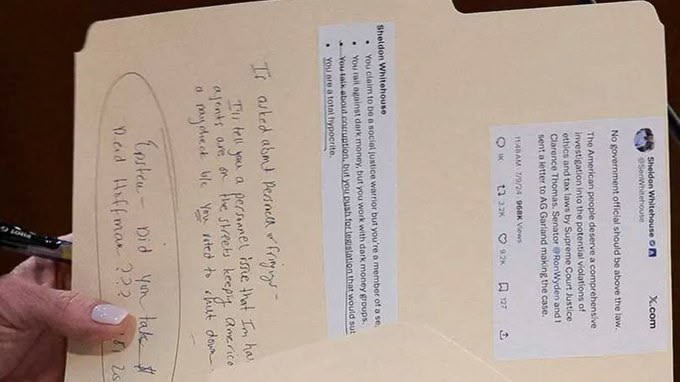 Sheldon Whitehouse X.com
@SenWhitehouse
No government official should be above the law.
The American people deserve a comprehensive
investigation into the potential violations of
ethics and tax laws by Supreme Court Justice
Clarence Thomas. Senator @RonWyden and I
sent a letter to AG Garland making the case.
11:48 AM · 7/9/24 · 968K Views
1K 3.2K 9.2K 127
Sheldon Whitehouse
• You claim to be a social justice warrior but you're a member of a se
• You rail against dark money, but you work with dark money groups.
• You talk about corruption, but you push for legislation that would sub
• You are a total hypocrite.
If asked about or Firings -
I'll tell you a personnel issue that I'm ha
agents are on the streets keeping America
a b/c you voted to shut down
Epstein - Did you take $
Reid Hoffman ???